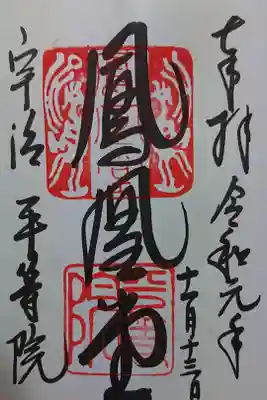 奉拝 令和元年
十一月十三日
鳳凰堂
宇治 平等院